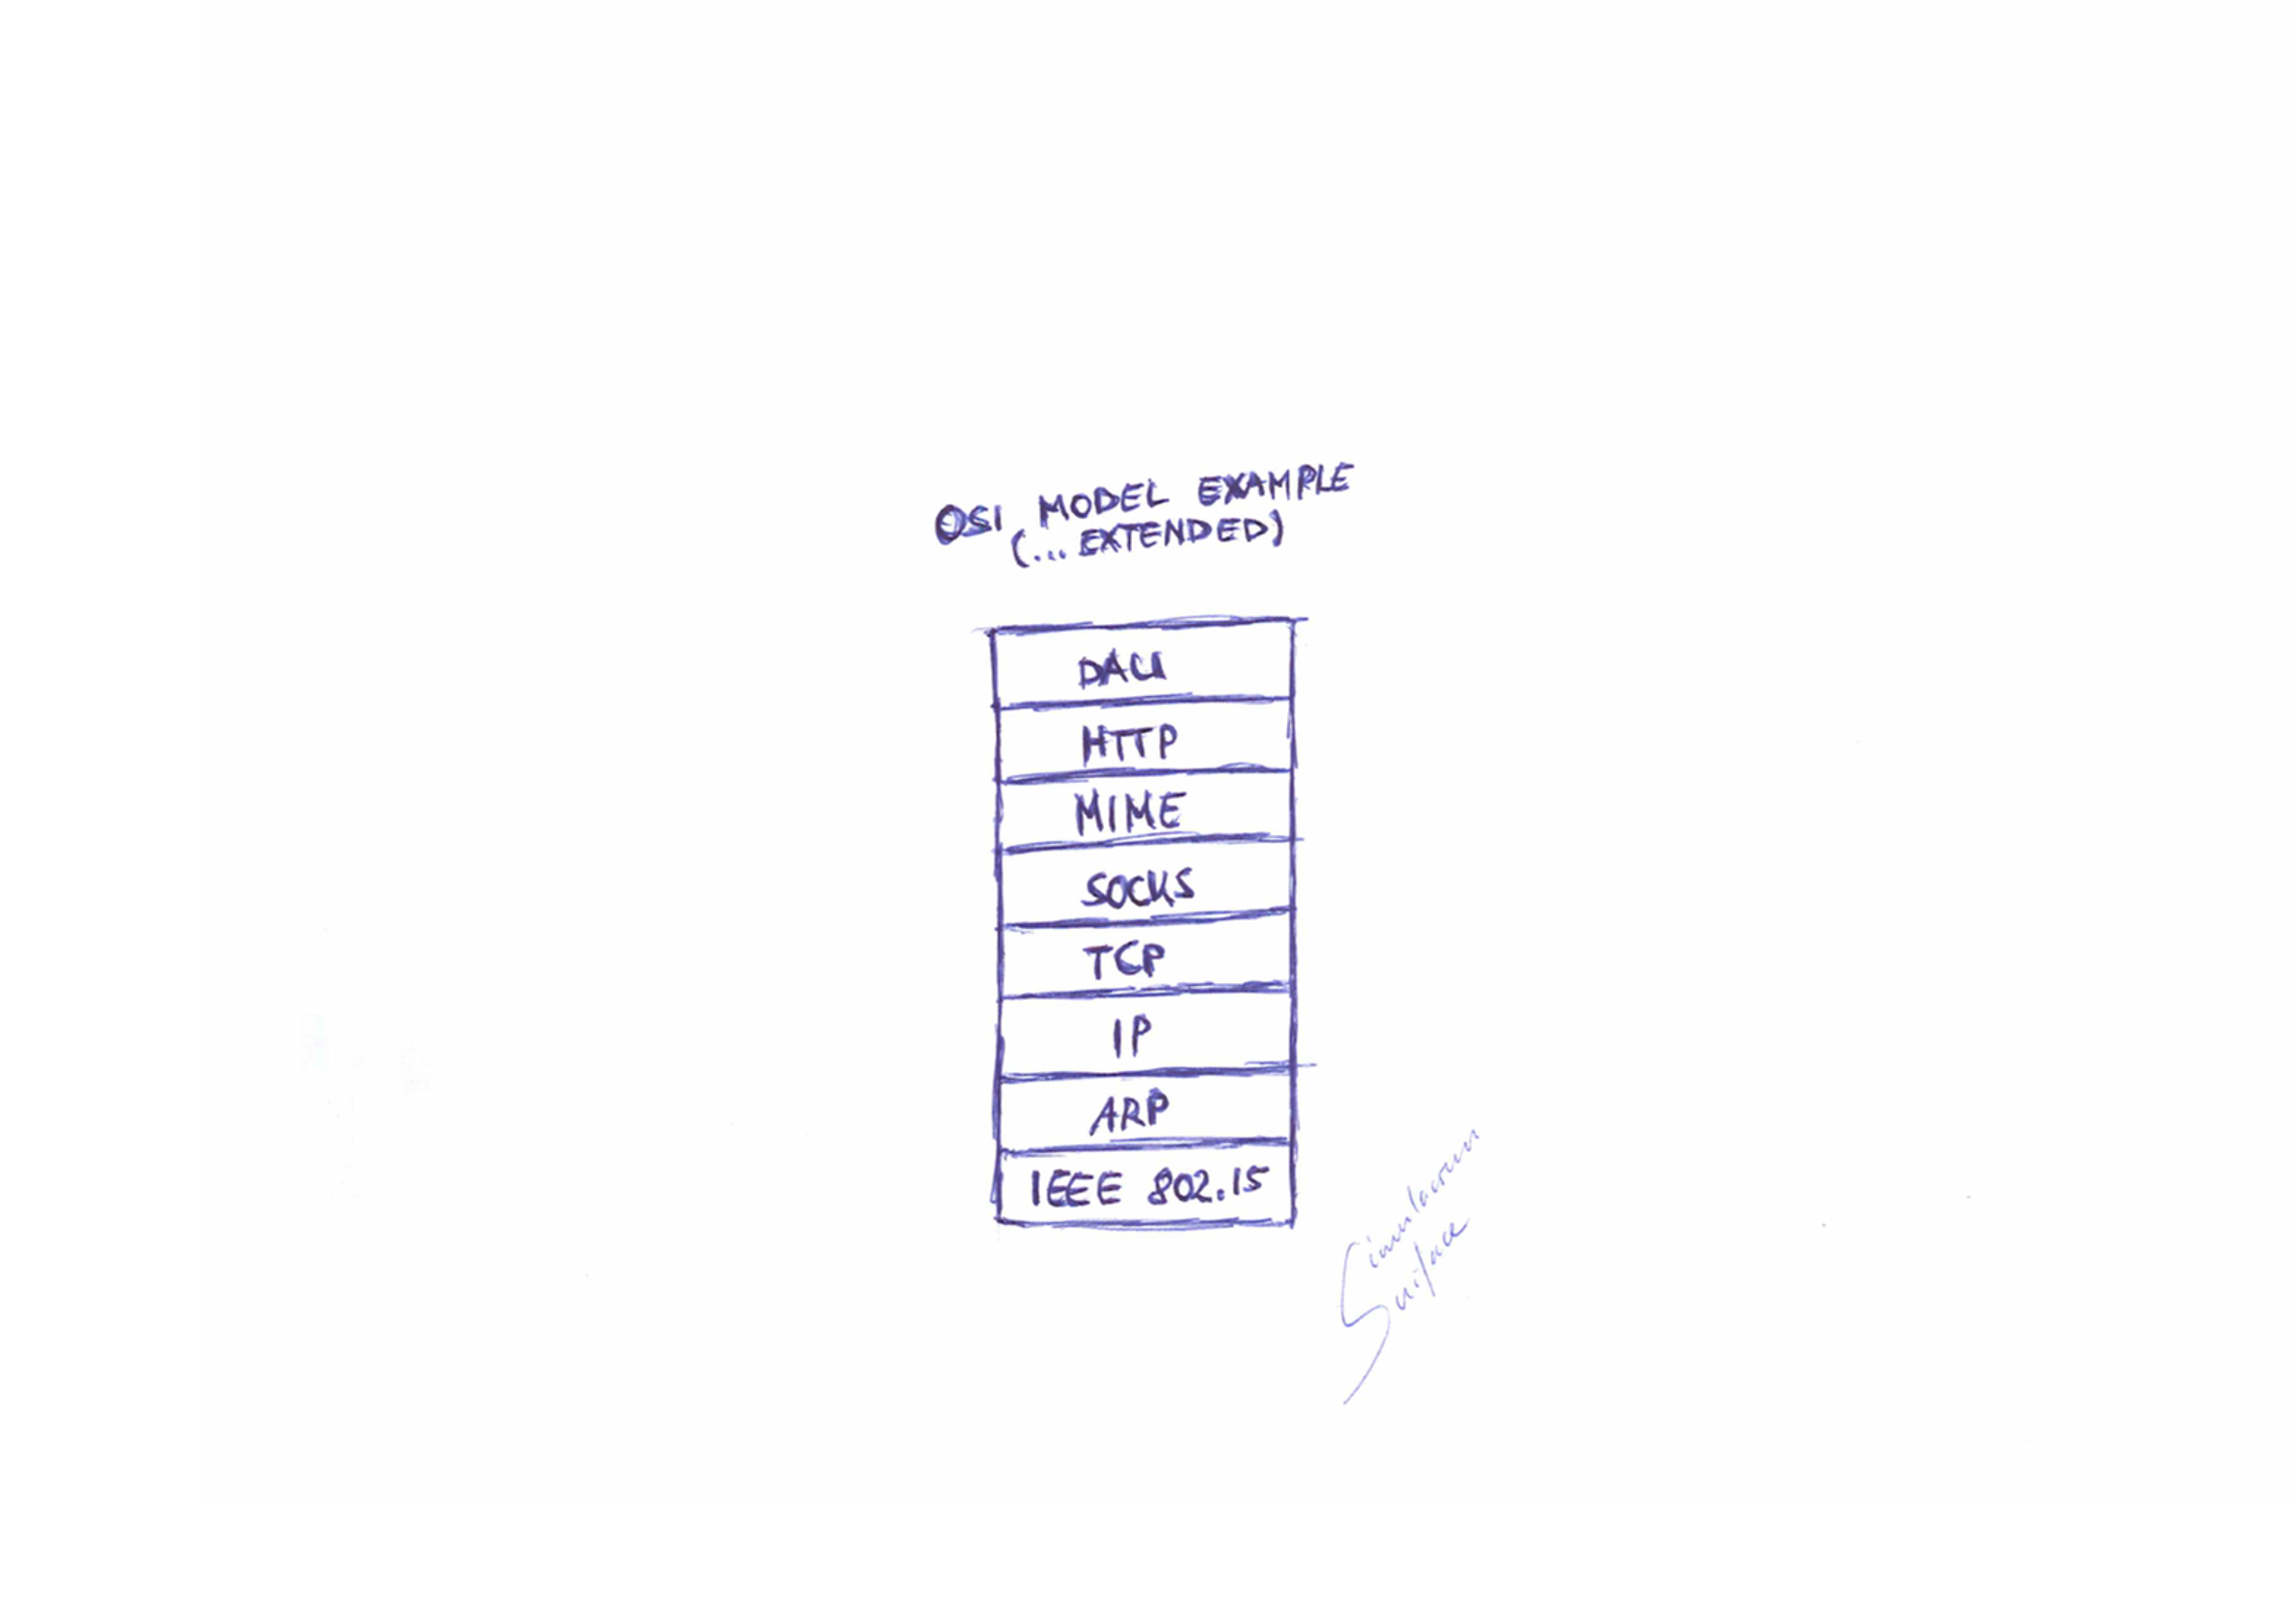 OSI MODEL EXAMPLE
(... EXTENDED)
DACI
HTTP
MIME
SOCKS
TCP
IP
ARP
IEEE 802.15
Simulacrum
Surface